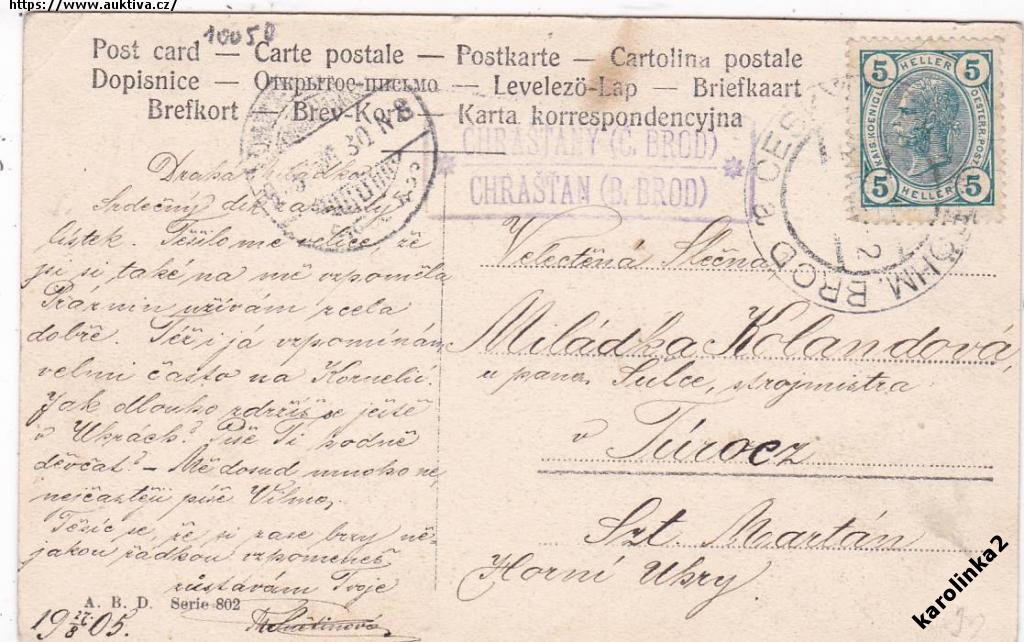 https://www.auktiva.cz/
10050
Post card — Carte postale — Postkarte — Cartolina postale
Dopisnice — Открытое письмо — Levelező-Lap — Briefkaart
Brefkort — Brev-Kort — Karta korrespondencyjna
5 HELLER 5
KAIS. KOENIGL. OESTERR. POST
5 HELLER 5
CHRÁŠŤANY (Č. BROD)
CHRAŠŤAN (B. BROD)
BÖHM. BROD
Drahá Miládko!
Srdečný dík za
lístek. Těšilo mě velice, že
jsi si také na mě vzpomněla.
Prázdnin užívám zcela
dobře. Též i já vzpomínám
velmi často na Kornelii.
Jak dlouho zdržíš se ještě
v Uhrách? Píše Ti hodně
děvčat? — Mě dosud mnoho ne,
nejčastěji píše Vilma.
Těšíc se, že si zase brzy ně-
jakou řádkou vzpomeneš
zůstávám Tvoje
A. B. D. Serie 802
19 27/8 05.
Velectěná Slečna
Miládka Kolandová,
u pana Sulce, strojmistra
v Túrocz
Szt. Martán
Horní Uhry
karolinka2